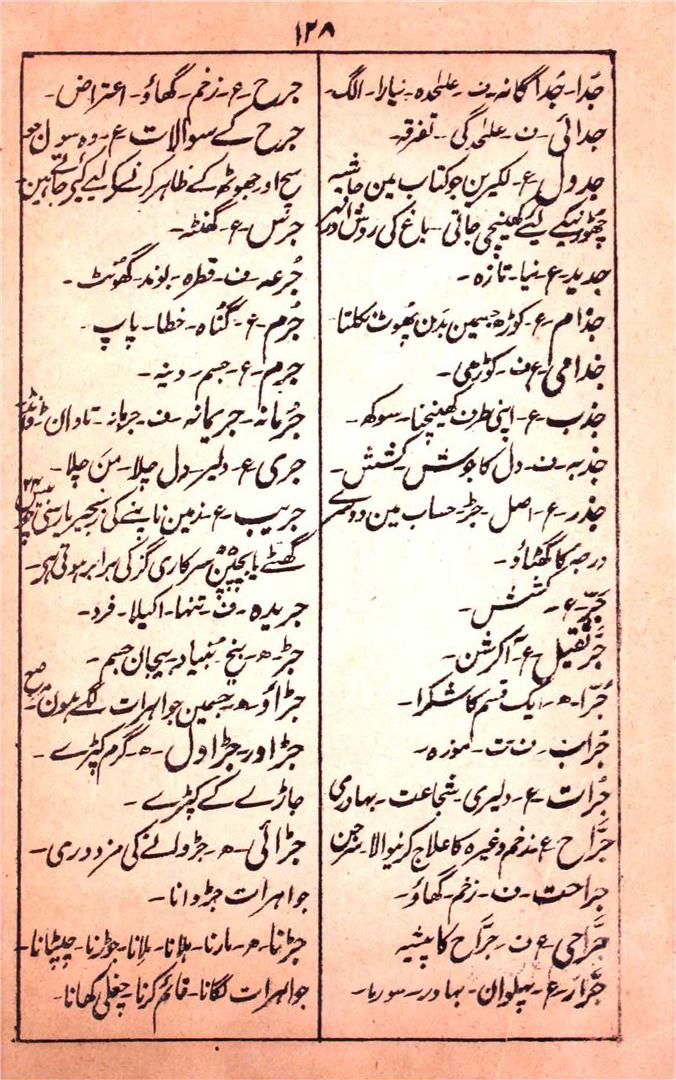 ۱۲۸
جُدا۔ جُداگانہ۔ ف۔ علٰحدہ۔ نیارا۔ الگ۔
جدائی۔ ف۔ علٰحدگی۔ تفرقہ۔
جدول ع۔ لکیرین جو کتاب مین حاشیہ
چھوڑنیکے لئے کھینچی جاتی۔ باغ کی روش اور نہر
جدید ع۔ نیا۔ تازہ۔
جذام ع۔ کوڑھ جسمین بدن پھوٹ نکلتا
جذامی ع ف۔ کوڑھی۔
جذب۔ ع۔ اپنی طرف کھینچنا۔ سوکھ۔
جذبہ۔ ف۔ دل کا جوش۔ کشش۔
جذر۔ ع۔ اصل۔ جڑ۔ حساب مین دوسرے
درجہ کا گھٹاؤ۔
جَرّ ع۔ کشش۔
جَرِّ ثقیل ع۔ آکرشن۔
جُرّا۔ ھ۔ ایک قسم کا شکرا۔
جُراب۔ ف ت۔ موزہ۔
جُرات۔ ع۔ دلیری۔ شجاعت۔ بہادری
جرّاح ع۔ زخم وغیرہ کا علاج کرنیوالا۔ سرجن
جراحت۔ ف۔ زخم۔ گھاؤ۔
جرّاحی ع ف۔ جرّاح کا پیشہ
جرّار۔ ع۔ پہلوان۔ بہادر۔ سورما۔
جرح۔ ع۔ زخم۔ گھاؤ۔ اعتراض۔
جرح کے سوالات ع۔ وہ سوال جو
سچ اور جھوٹھ کے ظاہر کرنے کے لیے کیے جاتے ہین
جرس۔ ع۔ گھنٹہ۔
جُرعہ۔ ف۔ قطرہ۔ بوند۔ گھونٹ۔
جُرم۔ ع۔ گُناہ۔ خطا۔ پاپ۔
جِرم۔ ع۔ جسم۔
جُرمانہ۔ جریمانہ۔ ف۔ جرمانہ۔ تاوان۔ ڈنڈ
جری ع۔ دلیر۔ دل چلا۔ من چلا۔
جریب۔ ع۔ زمین ناپنے کی زنجیر یا رسّی جو
گھٹے یا پچپن سرکاری گز کی برابر ہوتی ہے۔
جریدہ۔ ف۔ تنہا۔ اکیلا۔ فرد۔
جڑ۔ ھ۔ بیخ۔ بُنیاد۔ بیجان جسم۔
جڑاؤ۔ ھ۔ جسمین جواہرات لگے ہون۔ مرصع
جڑاور۔ جڑاول۔ ھ۔ گرم کپڑے۔
جاڑے کے کپڑے۔
جڑائی۔ ھ۔ جڑوانے کی مزدوری۔
جواہرات جڑوانا۔
جڑنا۔ ھ۔ مارنا۔ ملانا۔ جوڑنا۔ چپٹانا۔
جواہرات لگانا۔ قائم کرنا۔ چغلی کھانا۔